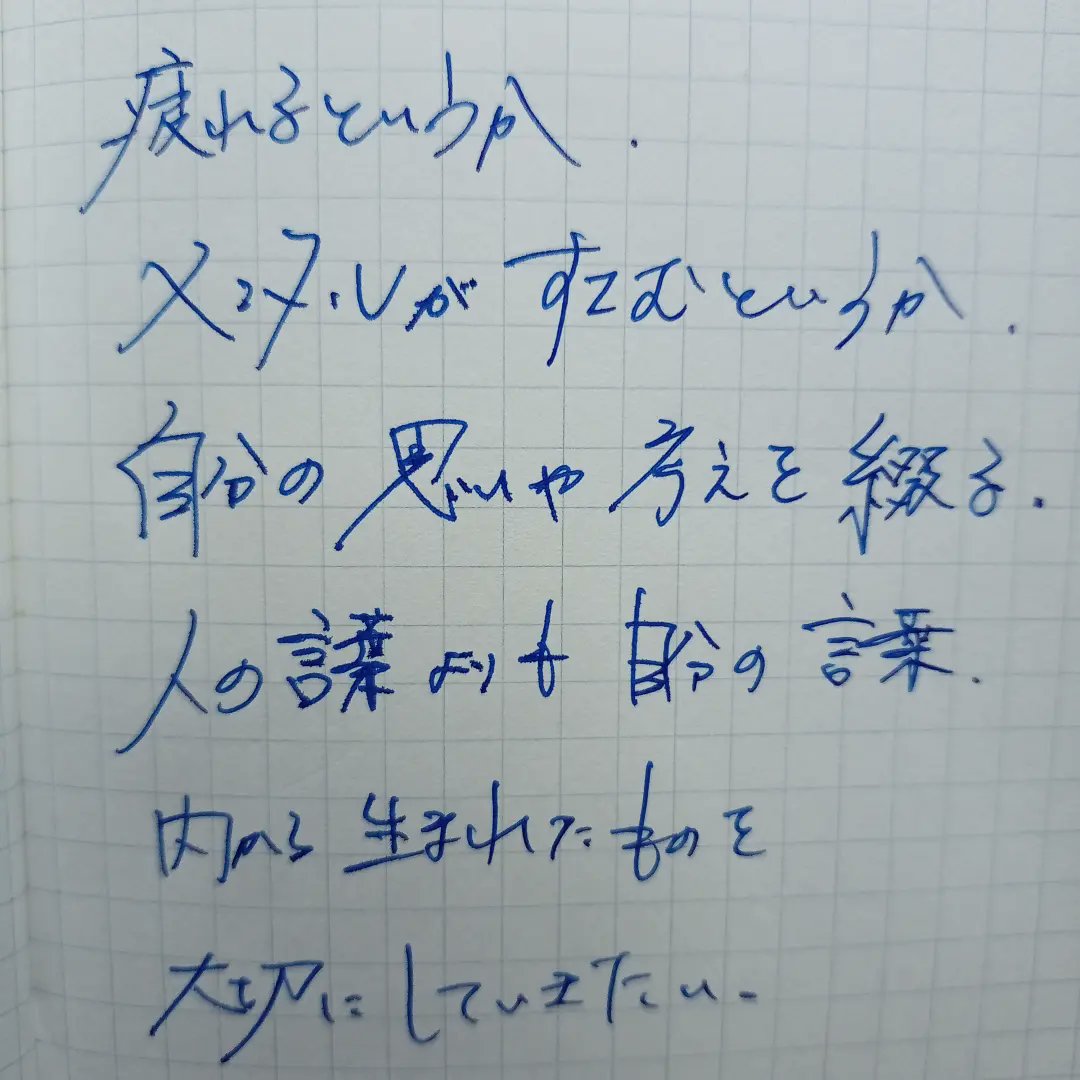 疲れるというか.
メンタルがすさむというか.
自分の思いや考えを綴る.
人の言葉よりも自分の言葉.
内から生まれたものを
大切にしていきたい.